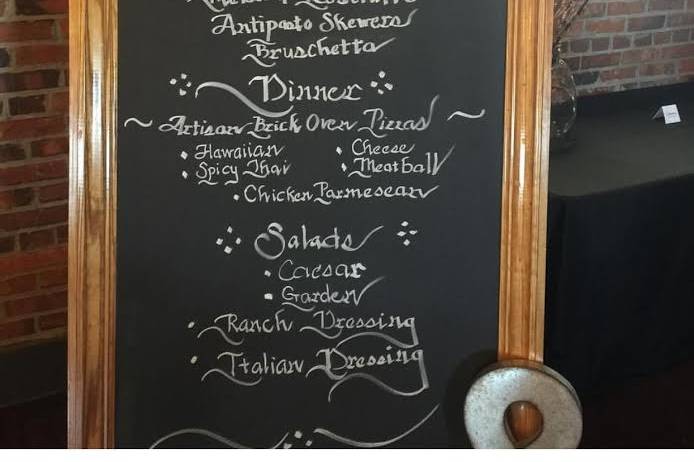 Antipasto Skewers
Bruschetta
Dinner
~ Artisan Brick Oven Pizzas ~
• Hawaiian • Cheese
• Spicy Thai • Meatball
• Chicken Parmesean
Salads
• Caesar
• Garden
• Ranch Dressing
• Italian Dressing